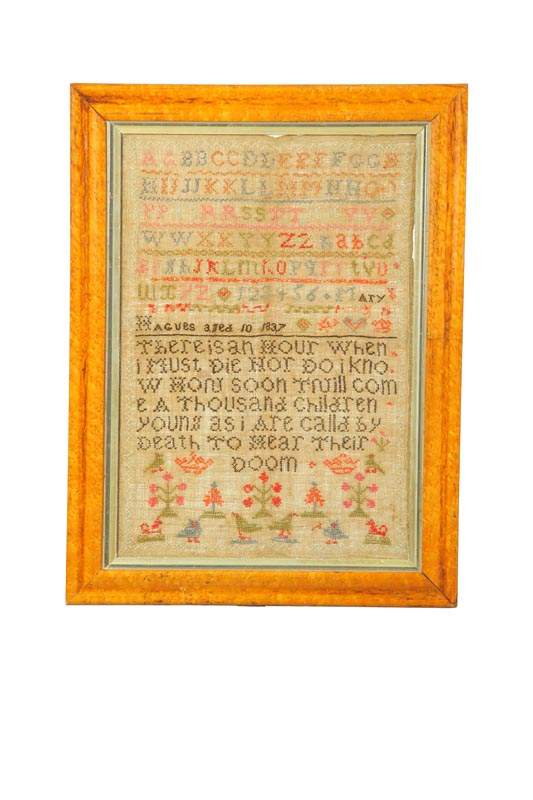 AABBCCDDEEFFFGGH
HIIJJKKLLMMNNOO
PP RRSSTT VV
WWXXYYZZ abcd
JKLmnOPqrrtvu
123456 Ary
Hagues aged 10 1837
Thereisan Hour When
i Must Die Nor Do i kno
W How soon Twill com
e A Thousand children
young as i Are calld by
Death To Hear Their
Doom